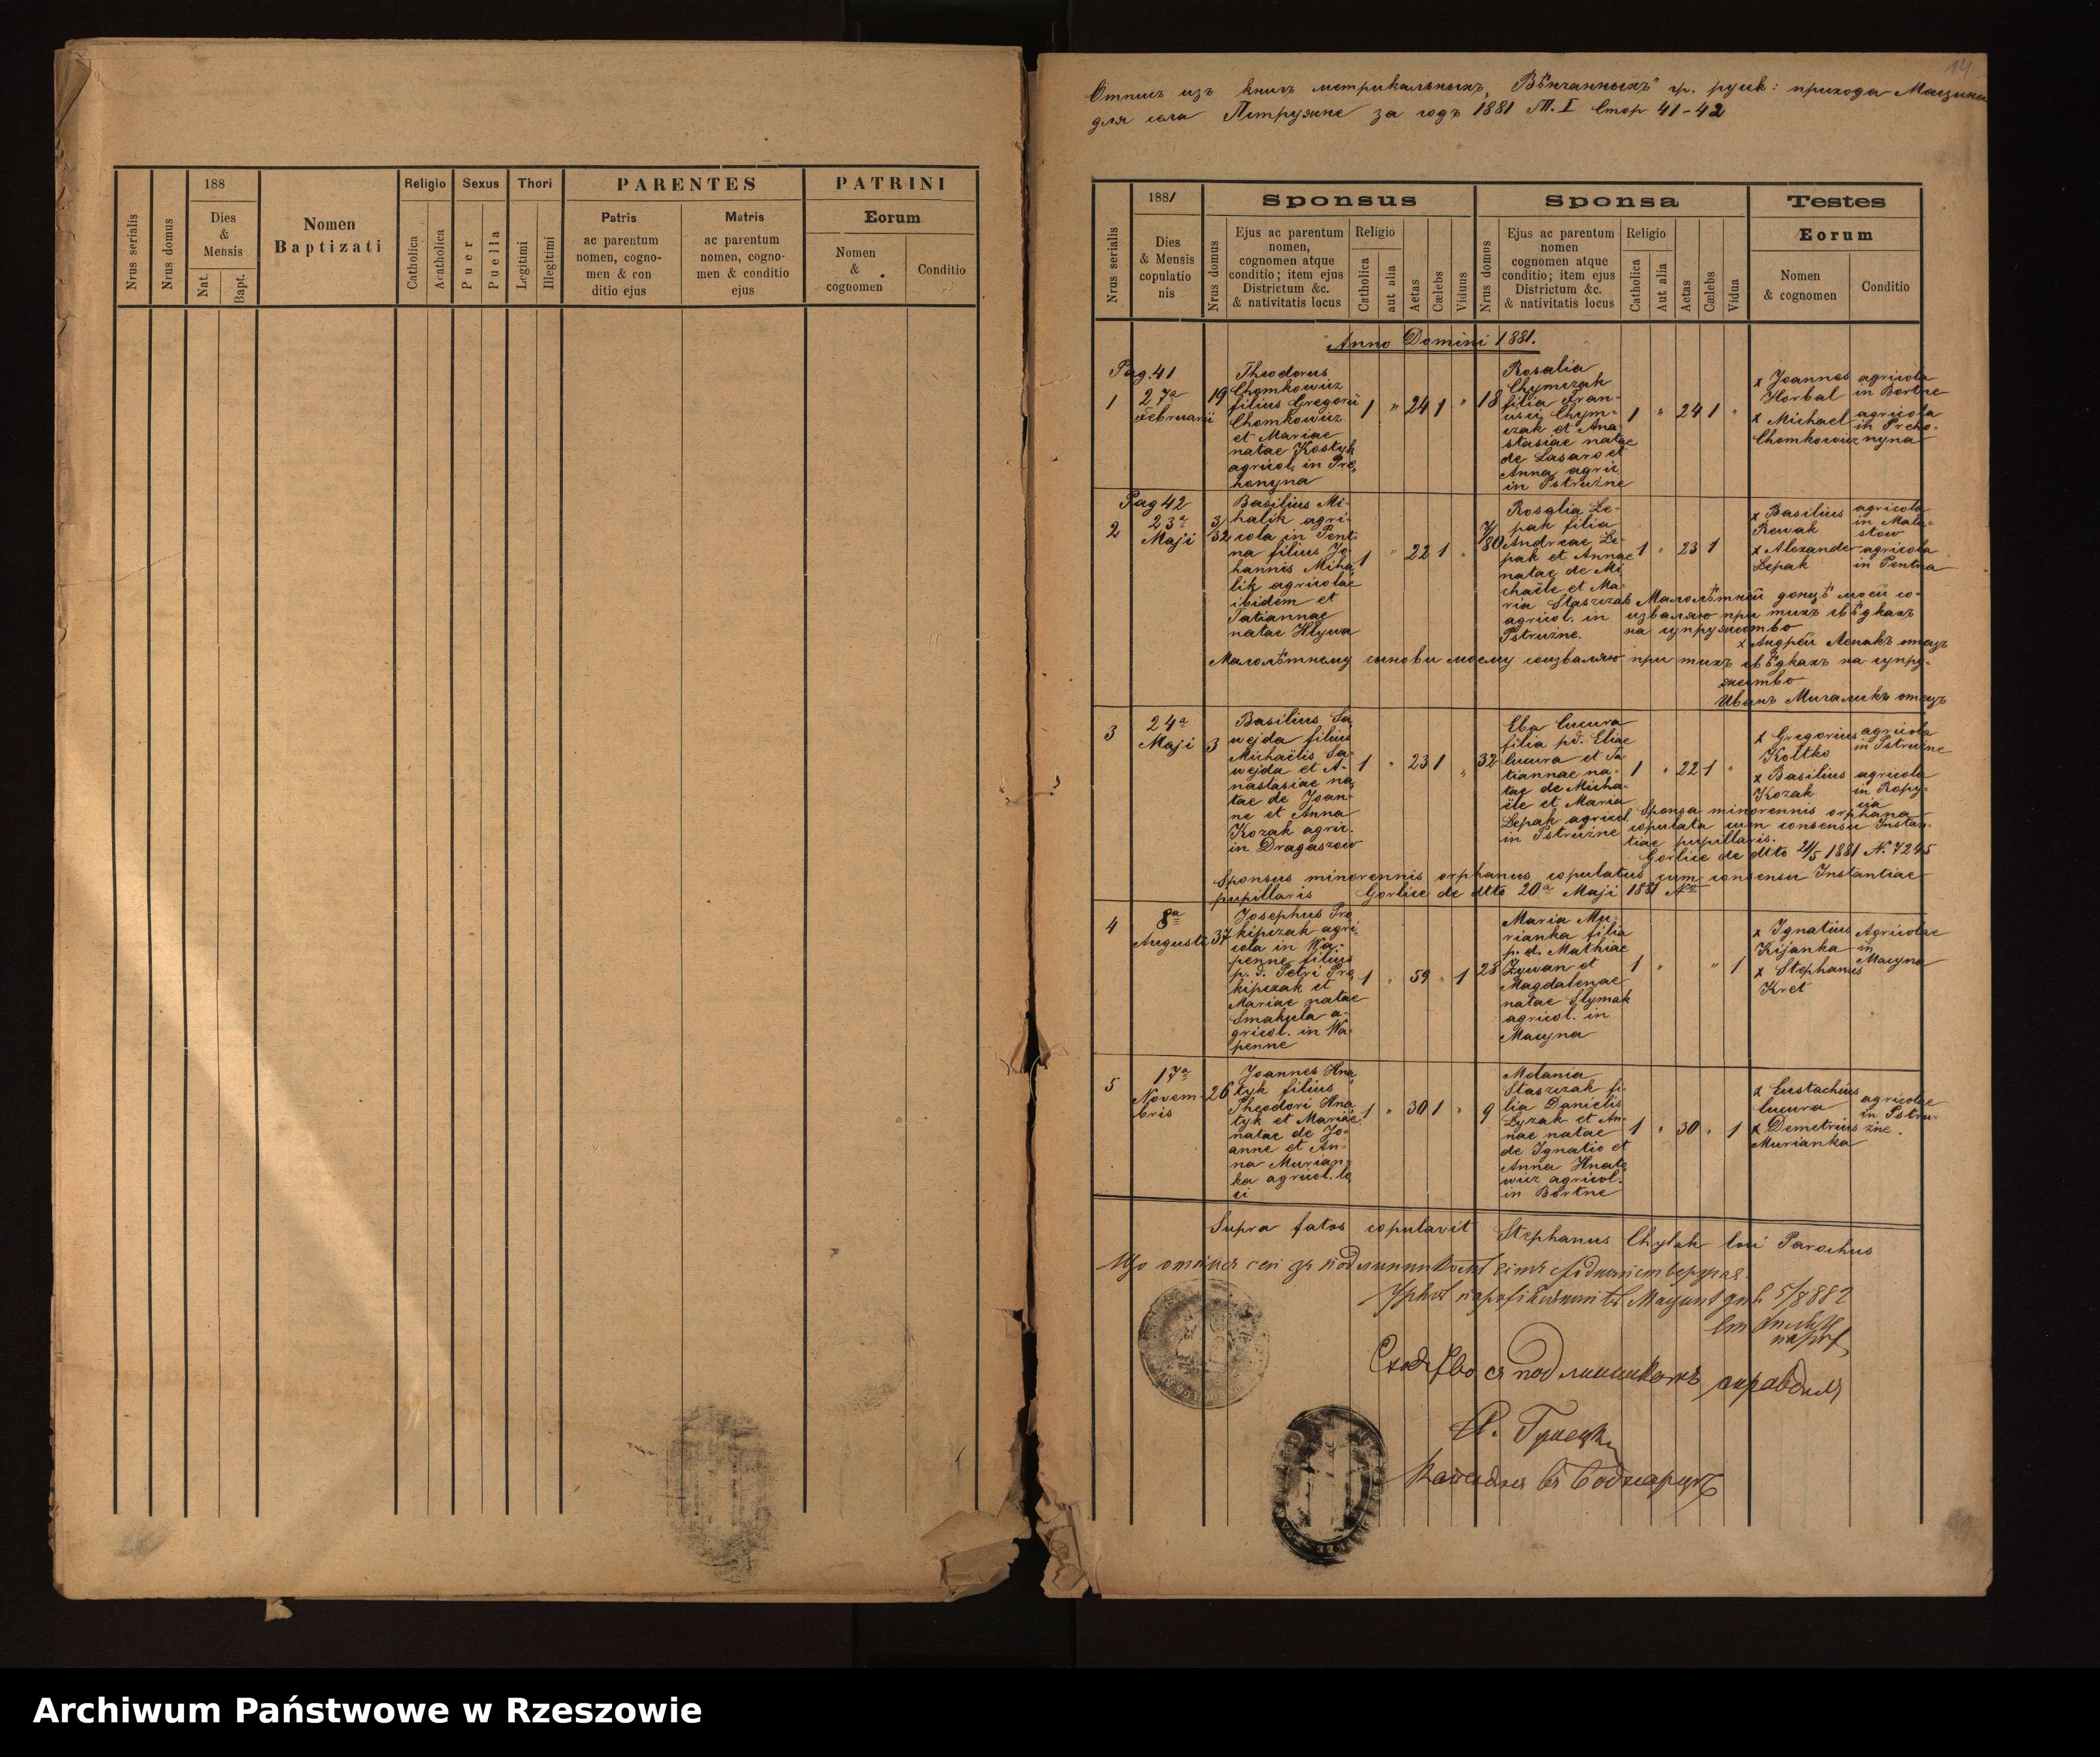 188
Nrus serialis
Nrus domus
Dies
&
Mensis
Nat.
Bapt.
Nomen
Baptizati
Religio
Catholica
Acatholica
Sexus
Puer
Puella
Thori
Legitimi
Illegitimi
PARENTES
Patris
ac parentum
nomen, cogno-
men & con
ditio ejus
Matris
ac parentum
nomen, cogno-
men & conditio
ejus
PATRINI
Eorum
Nomen
&
cognomen
Conditio
14
Отпись изъ книгъ метрикальныхъ „Вѣнчанныхъ" гр. руск: прихода Мацина
для села Пстружне за годъ 1881 Т. I Стор 41-42
Nrus serialis
1881
Dies
& Mensis
copulatio
nis
Sponsus
Nrus domus
Ejus ac parentum
nomen,
cognomen atque
conditio; item ejus
Districtum &c.
& nativitatis locus
Religio
Catholica
aut alia
Aetas
Cælebs
Viduus
Sponsa
Nrus domus
Ejus ac parentum
nomen
cognomen atque
conditio; item ejus
Districtum &c.
& nativitatis locus
Religio
Catholica
Aut alia
Aetas
Cælebs
Vidua
Testes
Eorum
Nomen
& cognomen
Conditio
Anno Domini 1881.
Pag. 41
1
27a
Februarii
19
Theodorus
Chomkowicz
filius Gregorii
Chomkowicz
et Mariae
natae Kostyk
agricol. in Pre
honyna
1 " 24 1 "
18
Rosalia
Chymczak
filia Fran-
cisci Chym-
czak et Ana
stasiae natae
de Lasaro et
Anna agric
in Pstrużne
1 " 24 1 "
x Joannes
Horbal
agricola
in Bortne
x Michael
Chomkowicz
agricola
in Preho-
nyna
Pag 42
2
23a
Maji
3/32
Basilius Mi-
halik agri-
cola in Pent-
na filius Jo
hannis Miha
lik agricolae
ibidem et
Tatiannae
natae Hlywa
1 " 22 1 "
7/80
Rosalia Le-
pak filia
Andreae Le-
pak et Annae
natae de Mi
chaële et Ma-
ria Staszczak
agricol. in
Pstrużne.
1 " 23 1
x Basilius
Rewak
agricola
in Mala-
stow
x Alexander
Lepak
agricola
in Pentna
Малолѣтнѣй донцѣ моей со-
изваляю при тихъ свѣдкахъ
на супружество
x Андрей Лепакъ отецъ
Малолѣтнему синови моему соизваляю при тихъ свѣдкахъ на супру-
жество
Иванъ Мигаликъ отецъ
3
24a
Maji
3
Basilius Sa
wejda filius
Michaëlis Sa-
wejda et A-
nastasiae na
tae de Joan-
ne et Anna
Kozak agric.
in Dragaszow
1 " 23 1 "
32
Eba Cucura
filia pd. Eliae
Cucura et Ta
tiannae na-
tae de Micha-
ële et Maria
Lepak agricol.
in Pstrużne
1 " 22 1 "
x Gregorius
Koltko
agricola
in Pstrużne
x Basilius
Kozak
agricola
in Ropy-
cia
Sponsa minorennis orphana
copulata cum consensu Instan-
tiae pupillaris.
Gorlice de dtto 21/5 1881 N. 7245
Sponsus minorennis orphanus copulatus cum consensu Instantiae
pupillaris Gorlice de dtto 20a Maji 1881 No
4
8a
Augusti
37
Josephus Pro
kipczak agri
cola in Wa-
penne filius
p. d. Petri Pro
kipczak et
Mariae natae
Smakula a-
gricol. in Wa-
penne
1 " 59 " 1
28
Maria Mu-
rianka filia
p. d. Mathiae
Zywan et
Magdalenae
natae Slymak
agricol. in
Macyna
1 " " 1
x Ignatius
Kijanka
x Stephanus
Kret
Agricolae
in
Macyna
5
17a
Novem-
bris
26
Joannes Hna
tyk filius
Theodori Hna
tyk et Mariae
natae de Jo-
anne et An-
na Murian-
ka agricol. lo
ci
1 " 30 1 "
9
Melania
Staszczak fi-
lia Danielis
Lyzak et An-
nae natae
de Ignatio et
Anna Hnate
wicz agricol.
in Bortne
1 " 30 " 1
x Eustachius
Cucura
x Demetrius
Murianka
agricolae
in Pstru-
żne.
Supra fatos copulavit Stephanus Chylak loci Parochus
5/8 882
съ подлинникомъ справдилъ
Archiwum Państwowe w Rzeszowie